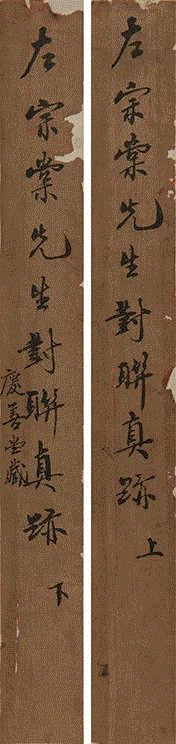 左宗棠先生對聯真跡 上
左宗棠先生對聯真跡 下
慶善堂藏